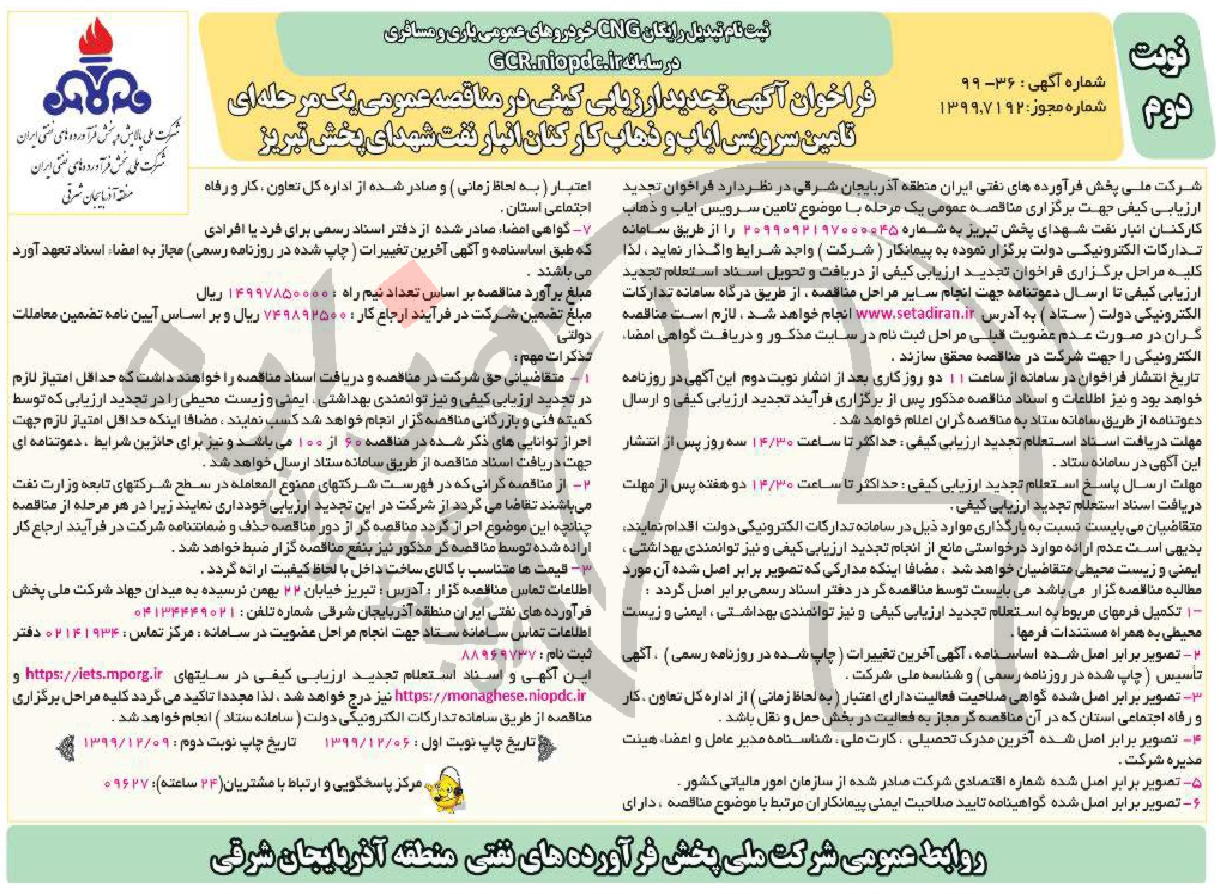 نوبت
دوم
شماره آگهی : ۳۶- ۹۹
شماره مجوز: ۱۳۹۹.۷۱۹۲
ثبت نام تبدیل رایگان CNG خودروهای عمومی باری و مسافری
در سامانه GCR.niopdc.ir
فراخوان آگهی تجدید ارزیابی کیفی در مناقصه عمومی یک مرحله ای
تامین سرویس ایاب و ذهاب کارکنان انبار نفت شهدای پخش تبریز
شرکت ملی پالایش و پخش فرآورده های نفتی ایران
شرکت ملی پخش فرآورده های نفتی ایران
منطقه آذربایجان شرقی
شرکت ملی پخش فرآورده های نفتی ایران منطقه آذربایجان شرقی در نظر دارد فراخوان تجدید
ارزیابی کیفی جهت برگزاری مناقصه عمومی یک مرحله با موضوع تامین سرویس ایاب و ذهاب
کارکنان انبار نفت شهدای پخش تبریز به شماره ۲۰۹۹۰۹۲۱۹۷۰۰۰۰۴۵ را از طریق سامانه
تدارکات الکترونیکی دولت برگزار نموده به پیمانکار ( شرکت ) واجد شرایط واگذار نماید ، لذا
کلیه مراحل برگزاری فراخوان تجدید ارزیابی کیفی از دریافت و تحویل اسناد استعلام تجدید
ارزیابی کیفی تا ارسال دعوتنامه جهت انجام سایر مراحل مناقصه ، از طریق درگاه سامانه تدارکات
الکترونیکی دولت ( ستاد ) به آدرس www.setadiran.ir انجام خواهد شد ، لازم است مناقصه
گران در صورت عدم عضویت قبلی مراحل ثبت نام در سایت مذکور و دریافت گواهی امضاء
الکترونیکی را جهت شرکت در مناقصه محقق سازند .
تاریخ انتشار فراخوان در سامانه از ساعت ۱۱ دو روز کاری بعد از انشار نوبت دوم این آگهی در روزنامه
خواهد بود و نیز اطلاعات و اسناد مناقصه مذکور پس از برگزاری فرآیند تجدید ارزیابی کیفی و ارسال
دعوتنامه از طریق سامانه ستاد به مناقصه گران اعلام خواهد شد .
مهلت دریافت اسناد استعلام تجدید ارزیابی کیفی : حداکثر تا ساعت ۱۴/۳۰ سه روز پس از انتشار
این آگهی در سامانه ستاد .
مهلت ارسال پاسخ استعلام تجدید ارزیابی کیفی : حداکثر تا ساعت ۱۴/۳۰ دو هفته پس از مهلت
دریافت اسناد استعلام تجدید ارزیابی کیفی .
متقاضیان می بایست نسبت به بارگذاری موارد ذیل در سامانه تدارکات الکترونیکی دولت اقدام نمایند،
بدیهی است عدم ارائه موارد درخواستی مانع از انجام تجدید ارزیابی کیفی و نیز توانمندی بهداشتی ،
ایمنی و زیست محیطی متقاضیان خواهد شد ، مضافا اینکه مدارکی که تصویر برابر اصل شده آن مورد
مطالبه مناقصه گزار می باشد می بایست توسط مناقصه گر در دفتر اسناد رسمی برابر اصل گردد :
۱- تکمیل فرمهای مربوط به استعلام تجدید ارزیابی کیفی و نیز توانمندی بهداشتی ، ایمنی و زیست
محیطی به همراه مستندات فرمها .
۲- تصویر برابر اصل شده اساسنامه ، آگهی آخرین تغییرات ( چاپ شده در روزنامه رسمی ) ، آگهی
تأسیس ( چاپ شده در روزنامه رسمی ) و شناسه ملی شرکت .
۳- تصویر برابر اصل شده گواهی صلاحیت فعالیت دارای اعتبار ( به لحاظ زمانی ) از اداره کل تعاون ، کار
و رفاه اجتماعی استان که در آن مناقصه گر مجاز به فعالیت در بخش حمل و نقل باشد .
۴- تصویر برابر اصل شده آخرین مدرک تحصیلی ، کارت ملی ، شناسنامه مدیر عامل و اعضاء هیئت
مدیره شرکت .
۵- تصویر برابر اصل شده شماره اقتصادی شرکت صادر شده از سازمان امور مالیاتی کشور .
۶- تصویر برابر اصل شده گواهینامه تایید صلاحیت ایمنی پیمانکاران مرتبط با موضوع مناقصه ، دارای
اعتبار ( به لحاظ زمانی ) و صادر شده از اداره کل تعاون ، کار و رفاه
اجتماعی استان .
۷- گواهی امضاء صادر شده از دفتر اسناد رسمی برای فرد یا افرادی
که طبق اساسنامه و آگهی آخرین تغییرات ( چاپ شده در روزنامه رسمی) مجاز به امضاء اسناد تعهد آورد
می باشند .
مبلغ برآورد مناقصه بر اساس تعداد نیم راه : ۱۴۹۹۷۸۵۰۰۰۰ ریال
مبلغ تضمین شرکت در فرآیند ارجاع کار : ۷۴۹۸۹۲۵۰۰ ریال و بر اساس آیین نامه تضمین معاملات
دولتی
تذکرات مهم :
۱- متقاضیانی حق شرکت در مناقصه و دریافت اسناد مناقصه را خواهند داشت که حداقل امتیاز لازم
در تجدید ارزیابی کیفی و نیز توانمندی بهداشتی ، ایمنی و زیست محیطی را در تجدید ارزیابی که توسط
کمیته فنی و بازرگانی مناقصه گزار انجام خواهد شد کسب نمایند ، مضافا اینکه حداقل امتیاز لازم جهت
احراز توانایی های ذکر شده در مناقصه ۶۰ از ۱۰۰ می باشد و نیز برای حائزین شرایط ، دعوتنامه ای
جهت دریافت اسناد مناقصه از طریق سامانه ستاد ارسال خواهد شد .
۲- از مناقصه گرانی که در فهرست شرکتهای ممنوع المعامله در سطح شرکتهای تابعه وزارت نفت
میباشند تقاضا می گردد از شرکت در این تجدید ارزیابی خودداری نمایند زیرا در هر مرحله از مناقصه
چنانچه این موضوع احراز گردد مناقصه گر از دور مناقصه حذف و ضمانتنامه شرکت در فرآیند ارجاع کار
ارائه شده توسط مناقصه گر مذکور نیز بنفع مناقصه گزار ضبط خواهد شد .
۳- قیمت ها متناسب با کالای ساخت داخل با لحاظ کیفیت ارائه گردد .
اطلاعات تماس مناقصه گزار : آدرس : تبریز خیابان ۲۲ بهمن نرسیده به میدان جهاد شرکت ملی پخش
فرآورده های نفتی ایران منطقه آذربایجان شرقی شماره تلفن : ۰۴۱۳۴۴۴۹۰۲۱
اطلاعات تماس سامانه ستاد جهت انجام مراحل عضویت در سامانه : مرکز تماس : ۰۲۱۴۱۹۳۴ دفتر
ثبت نام : ۸۸۹۶۹۷۳۷
این آگهی و اسناد استعلام تجدید ارزیابی کیفی در سایتهای https://iets.mporg.ir و
https://monaghese.niopdc.ir نیز درج خواهد شد ، لذا مجددا تاکید می گردد کلیه مراحل برگزاری
مناقصه از طریق سامانه تدارکات الکترونیکی دولت ( سامانه ستاد ) انجام خواهد شد .
تاریخ چاپ نوبت اول : ۱۳۹۹/۱۲/۰۶ تاریخ چاپ نوبت دوم : ۱۳۹۹/۱۲/۰۹
مرکز پاسخگویی و ارتباط با مشتریان(۲۴ ساعته): ۰۹۶۲۷
روابط عمومی شرکت ملی پخش فرآورده های نفتی منطقه آذربایجان شرقی